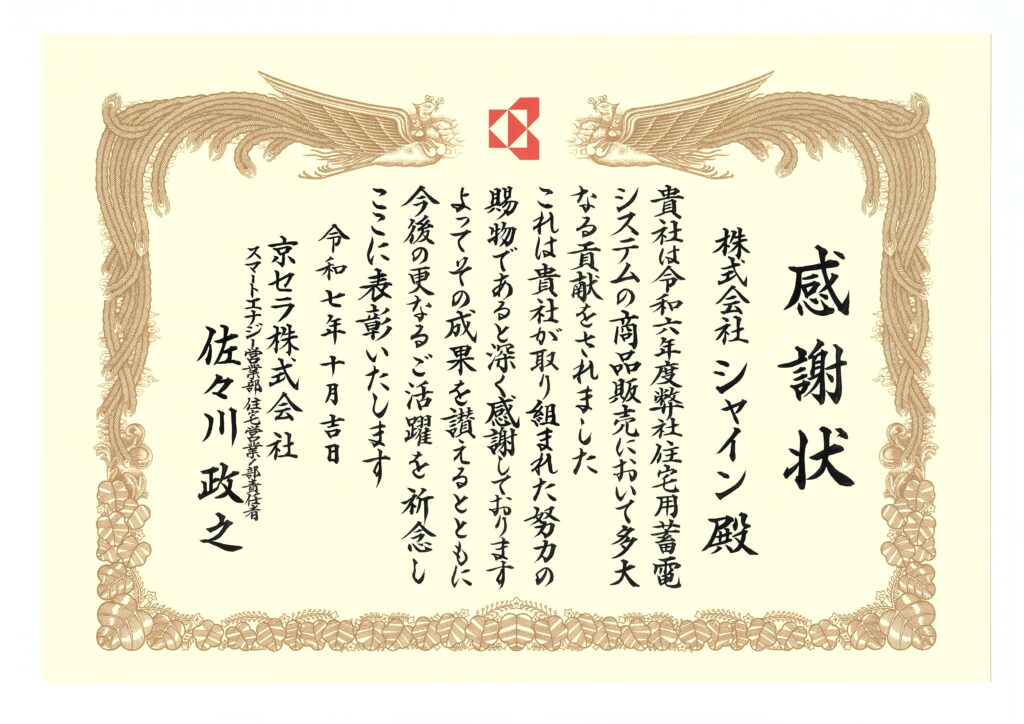 感謝状
株式会社 シャイン 殿
貴社は令和六年度弊社住宅用蓄電
システムの商品販売において多大
なる貢献をされました
これは貴社が取り組まれた努力の
賜物であると深く感謝しております
よってその成果を讃えるとともに
今後の更なるご活躍を祈念し
ここに表彰いたします
令和七年十月吉日
京セラ株式会社
スマートエナジー営業部 住宅営業1部責任者
佐々川 政之